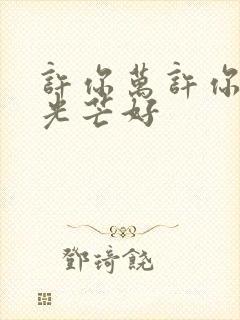 許你萬許你
光芒好
鄧琦饒